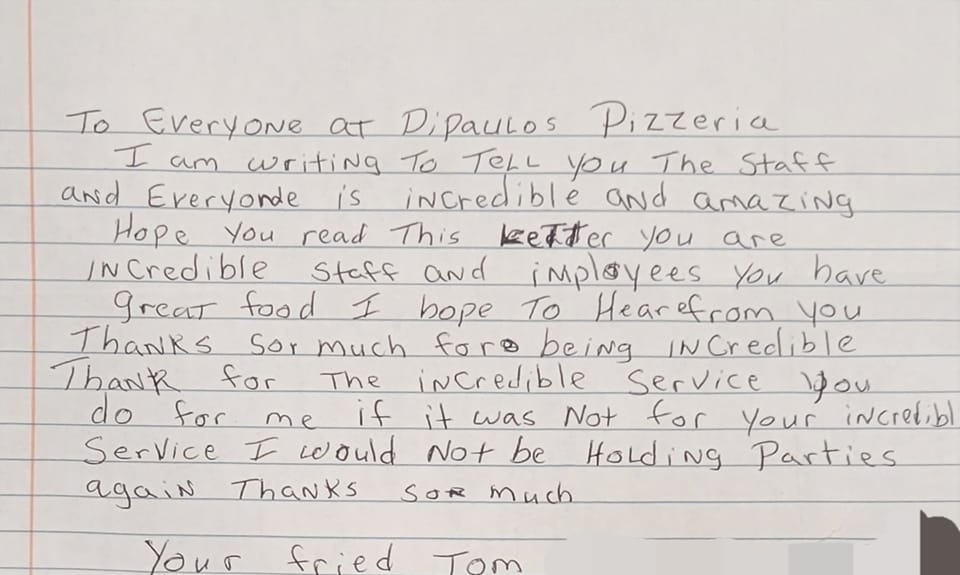 To Everyone at Dipaulos Pizzeria
I am writing To Tell you The Staff
and Everyonde is incredible and amazing
Hope you read This Letter you are
incredible staff and imployees you have
great food I hope To Hearefrom you
Thanks sor much for being incredible
Thank for The incredible Service you
do for me if it was Not for your incredibl
Service I would Not be Holding Parties
again Thanks sor much
Your fried Tom